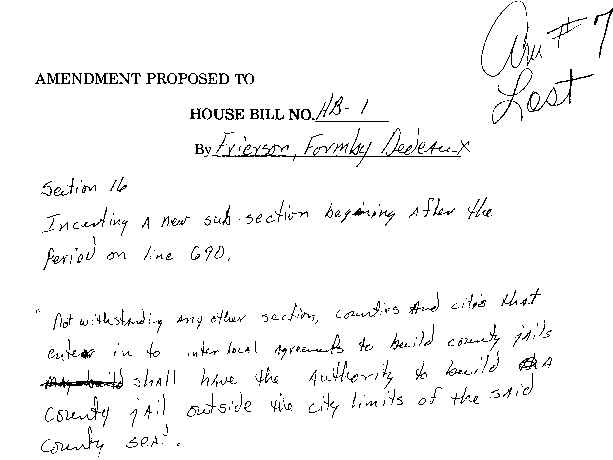 Am # 7
Lost
AMENDMENT PROPOSED TO
HOUSE BILL NO. HB-1
By Frierson, Formby Dedeaux
Section 16
Inserting A new sub-section beginning After the
Period on line 690.
"Not withstanding any other section, counties and cities that
enter in to inter local Agreements to build county jails
shall have the Authority to build A
County jail outside the city limits of the said
County seat.